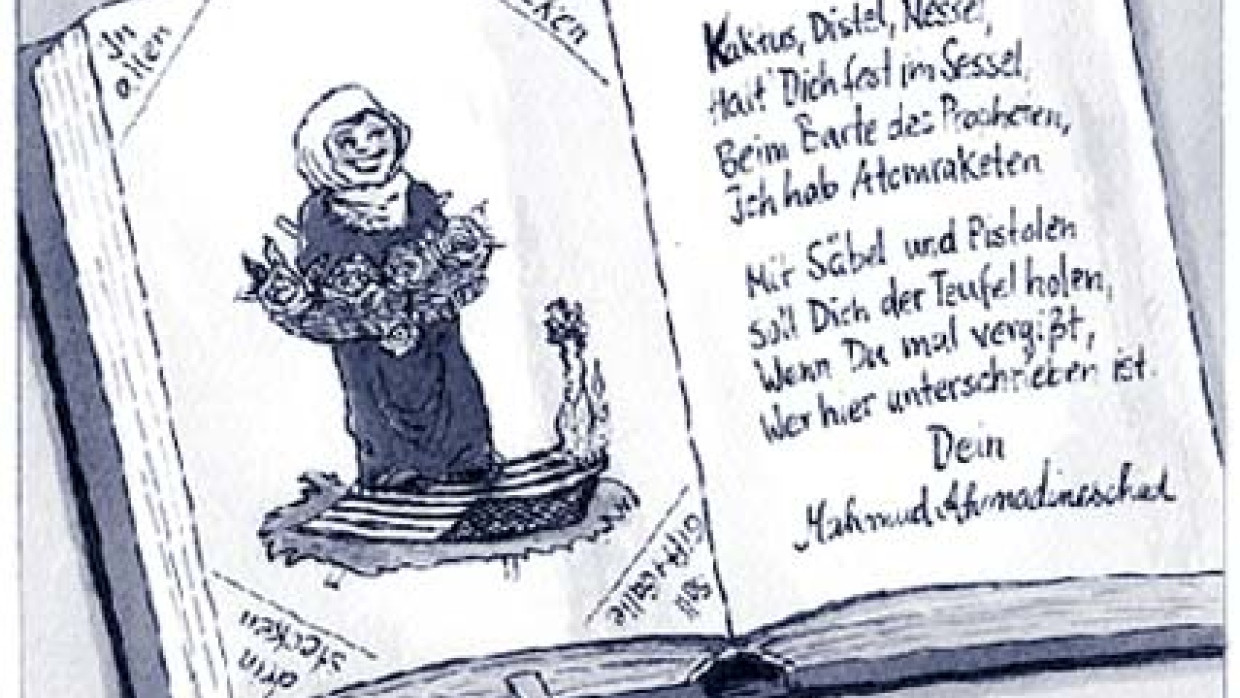 In
allen
cken
Kaktus, Distel, Nessel,
Halt' Dich fest im Sessel,
Beim Barte des Propheten,
Ich hab Atomraketen
Mit Säbel und Pistolen
soll Dich der Teufel holen,
Wenn Du mal vergißt,
Wer hier unterschrieben ist.
Dein
Mahmud Ahmadineschad
Soll
Gift + Galle
drin
stecken